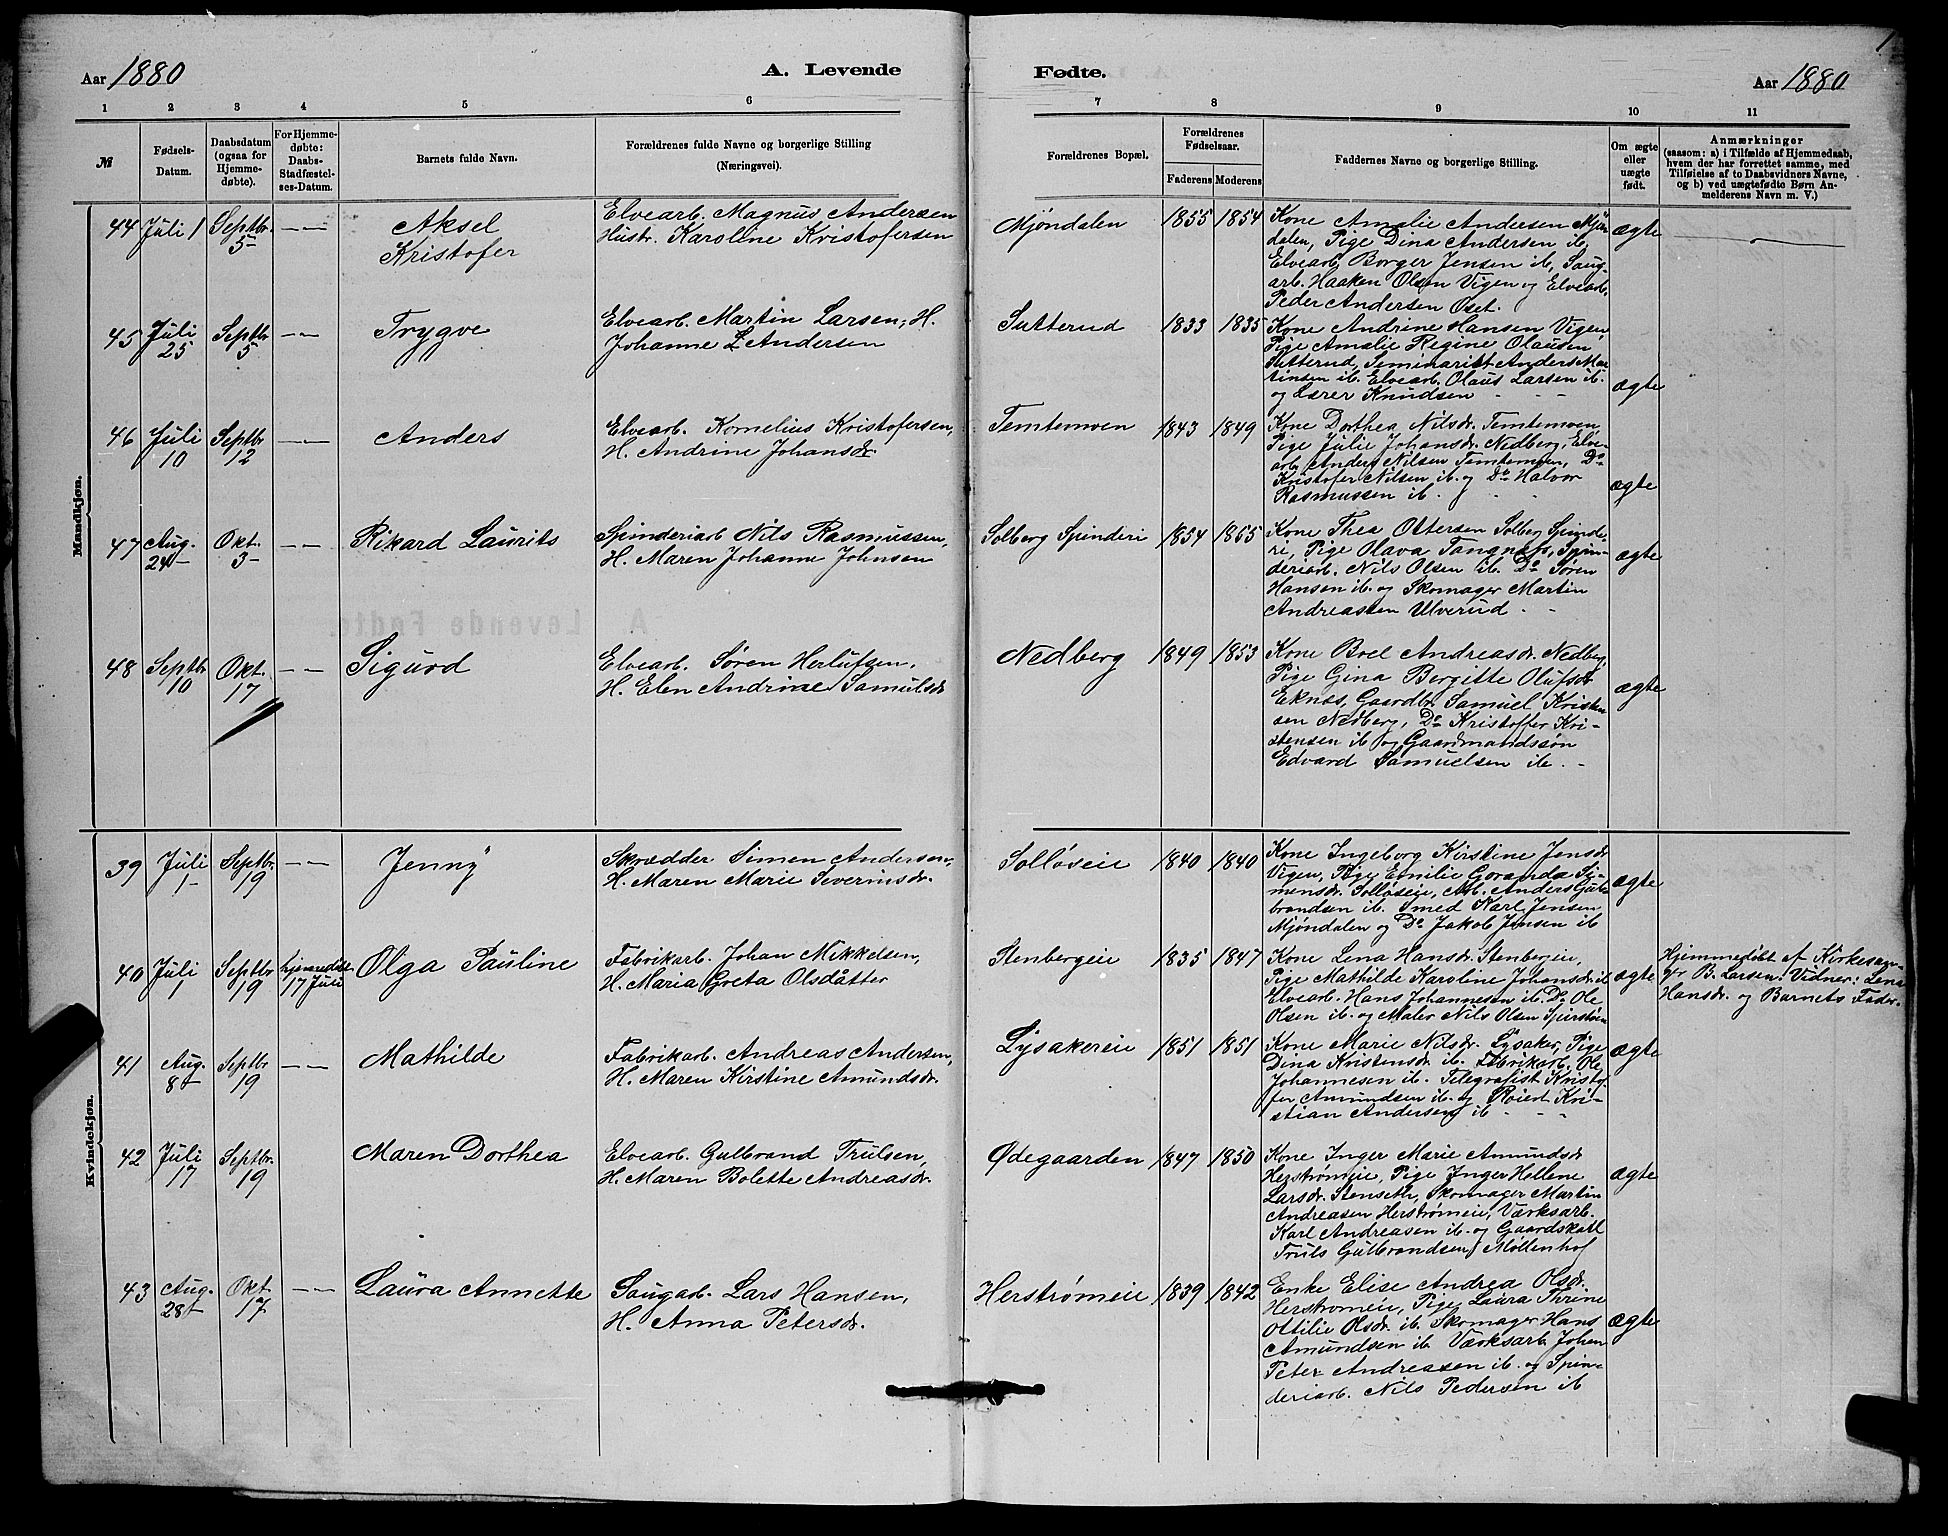 Aar 1880
A. Levende
Fødte.
Aar 1880
1
1 2 3 4 5 6 7 8 9 10 11
№
Fødsels-
Datum.
Daabsdatum
(ogsaa for
Hjemme-
døbte).
For Hjemme-
døbte:
Daabs-
Stadfæstel-
ses-Datum.
Barnets fulde Navn.
Forældrenes fulde Navne og borgerlige Stilling
(Næringsvei).
Forældrenes Bopæl.
Forældrenes
Fødselsaar.
Faderens Moderens
Faddernes Navne og borgerlige Stilling.
Om ægte
eller
uægte
født.
Anmærkninger
(saasom: a) i Tilfælde af Hjemmedaab,
hvem der har forrettet samme, med
Tilføielse af to Daabsvidners Navne,
og b) ved uægtefødte Børn An-
melderens Navn m. V.)
Mandkjøn.
44 Juli 1 Septbr. 5 — —
Aksel
Kristofer
Elvearb. Magnus Andersen
Hustr. Karoline Kristofersen
Mjøndalen 1855 1854
Kone Amalie Andersen Mjøn-
dalen, Pige Dina Andersen ib,
Elvearb. Borger Jensen ib, Saug-
arb. Haaken Olsen Vigen og Elvearb.
Peder Andersen Oset.
ægte
45 Juli 25 Septbr 5 — —
Trygve
Elvearb. Martin Larsen, H.
Johanne L Andersen
Sutterud 1833 1835
Kone Andrine Hansen Vigen,
Pige Amalie Regine Olausen
Sutterud, Seminarist Anders Mar-
tinsen ib. Elvearb. Olaus Larsen ib.
og Lærer Knudsen
ægte
46 Juli 10 Septbr 12 — —
Anders
Elvearb. Kornelius Kristofersen,
H. Andrine Johansdr
Temtemoen 1843 1849
Kone Dorthea Nilsdr. Temtemoen,
Pige Julie Johansdr. Nedberg, Elve-
arb. Anders Nilsen Temtemoen, Do
Kristofer Nilsen ib. og Do Halvor
Rasmussen ib.
ægte
47 Aug. 24 Okt. 3 — —
Rikard Laurits
Spinderiarb Nils Rasmussen,
H. Maren Johanne Johnsen
Solberg Spinderi 1854 1855
Kone Thea Ottersen Solberg Spinde-
ri, Pige Olava Tangnæs, Spin-
deriarb. Nils Olsen ib. Do Søren
Hansen ib. og Skomager Martin
Andreassen Ulverud
ægte
48 Septbr 10 Okt. 17 — —
Sigurd
Elvearb. Søren Herlufsen,
H. Elen Andrine Samulsdr
Nedberg 1849 1853
Kone Boel Andreasdr. Nedberg,
Pige Gina Bergitte Olufsdr
Eknæs, Gaardbr. Samuel Kristen-
sen Nedberg, Do Kristoffer Kri-
stensen ib og Gaardmandssøn
Edvard Samuelsen ib.
ægte
Kvindekjøn.
39 Juli 1 Septbr. 19 — —
Jenny
Skrædder Simen Andersen,
H. Maren Marie Severinsdr.
Solløseie 1840 1840
Kone Ingeborg Kirstine Jensdr
Vigen, Pige Emilie Goranda Si-
mensdr. Solløseie, Arb. Anders Gul-
brandsen ib. Smed Karl Jensen
Mjøndalen og Do Jakob Jensen ib
ægte
40 Juli 1 Septbr 19 hjemmedøbt 17 Juli
Olga Pauline
Fabrikarb. Johan Mikkelsen,
H. Maria Greta Olsdatter
Stenbergeie 1835 1847
Kone Lena Hansdr. Stenbergeie,
Pige Mathilde Karoline Johansdr. ib
Elvearb. Hans Johannesen ib. Do Ole
Olsen ib. og Maler Nils Olsen
ægte
Hjemmedøbt af Kirkesan-
ger B. Larsen. Vidner: Lena
Hansdr. og Barnets Fader.
41 Aug. 8 Septbr 19 — —
Mathilde
Fabrikarb. Andreas Andersen,
H. Maren Kirstine Amundsdr.
Lysakereie 1851 1851
Kone Marie Nilsdr. Lysaker, Pige
Dina Kristensdr. ib. Fabrikarb. Ole
Johannesen ib. Telegrafist Kristo-
fer Amundsen ib. og Kri-
stian Andersen ib
ægte
42 Juli 17 Septbr. 19
Maren Dorthea
Elvearb. Gulbrand Trulsen,
H. Maren Bolette Andreasdr.
Ødegaarden 1847 1850
Kone Inger Marie Amundsdr
Herstrømeie, Pige Inger Hellene
Larsdr. Stenseth, Skomager Martin
Andreasen Herstrømeie, Værksarb.
Karl Andreasen ib. og Gaardskarl
Truls Gulbrandsen, Møllenhof
ægte
43 Aug. 28 Okt 17 — —
Laura Annette
Saugarb. Lars Hansen,
H. Anna Petersdr.
Herstrømeie 1839 1842
Enke Elise Andrea Olsdr.
Herstrømeie, Pige Laura Thrine
Ottilie Olsdr. ib. Skomager Hans
Amundsen ib. Værksarb. Johan
Peter Andreasen ib. og Spin-
deriarb. Nils Pedersen ib
ægte